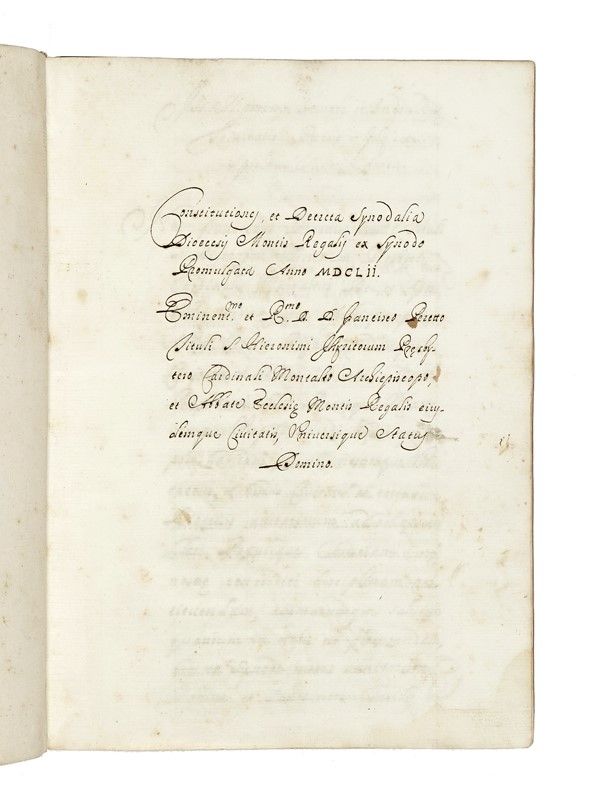 Constitutiones, et Decreta Synodalia
Dioecesis Montis Regalis ex Synodo
Promulgata Anno MDCLII.
Eminent.mo et R.mo D. D. Francisco Peretto
Tituli S. Hieronimi Illyricorum Presby-
tero Cardinali Montalto Archiepiscopo,
et Abbate Ecclesię Montis Regalis eius-
demque Civitatis, Universique Status
Domino.